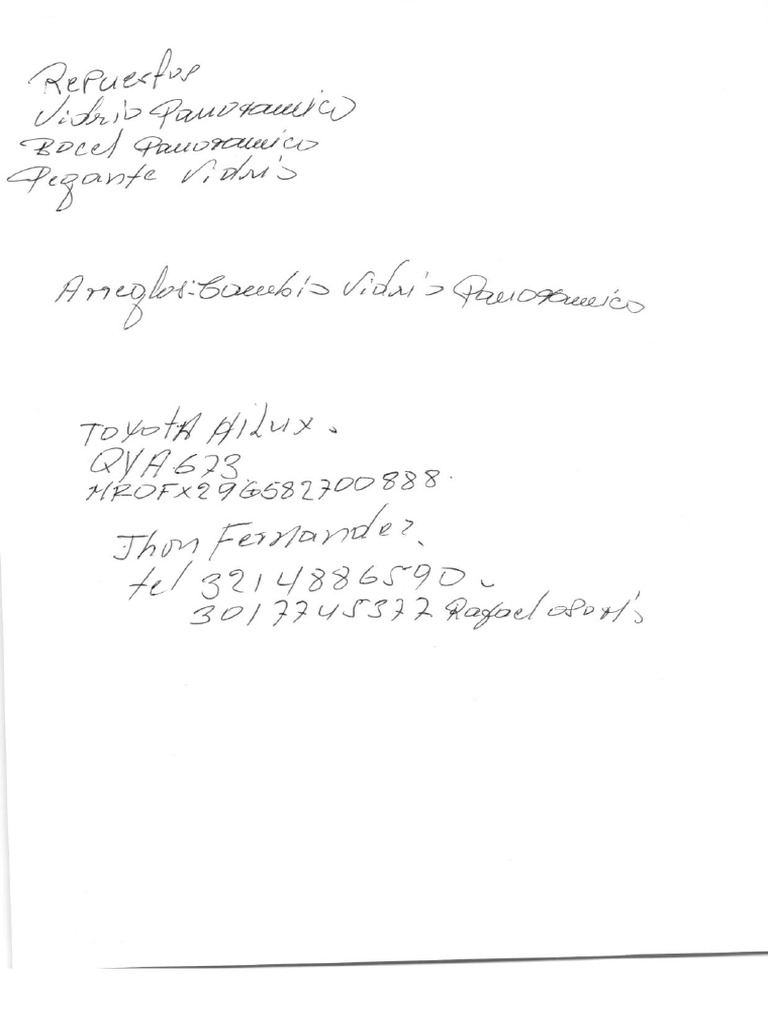 Repuestos
Vidrio Panoramico
Bocel Panoramico
Pegante Vidrio
Arreglos: Cambio Vidrio Panoramico
TOYOTA HILUX.
QYA673
MROFX29G582700888.
Jhon Fernandez.
tel 3214886590
3017745377 Rafael Osorio